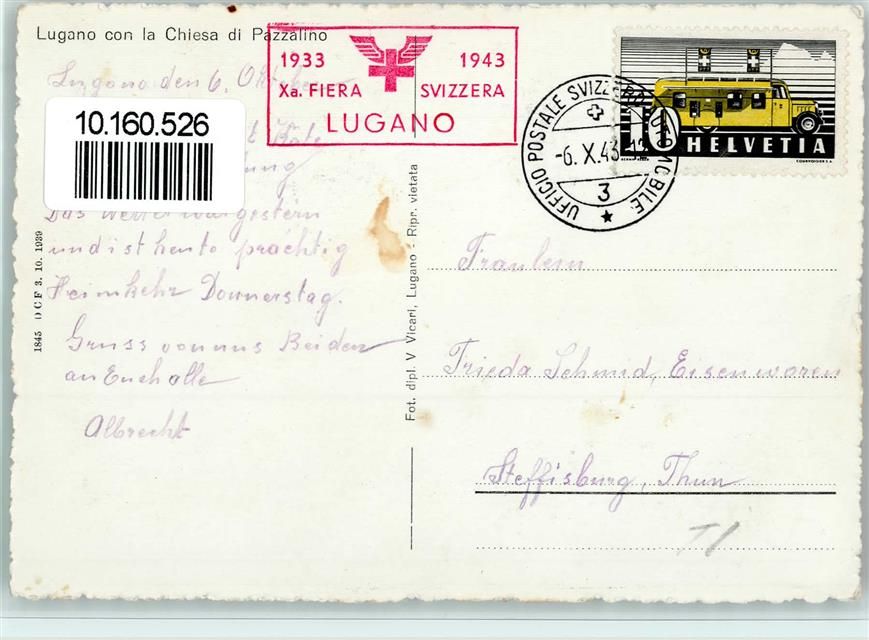 Lugano con la Chiesa di Pazzalino
1933 1943
Xa. FIERA SVIZZERA
LUGANO
UFFICIO POSTALE SVIZZERO AUTOMOBILE
-6. X. 43.-12
3
10
HELVETIA
COURVOISIER S.A.
10.160.526
Lugano den 6. Oktober
Das Wetter war gestern
und ist heute prächtig
Heimkehr Donnerstag.
Gruss von uns Beiden
an Euch alle
Albrecht
1845 DCF 3. 10. 1939
Fot. dipl. V Vicari, Lugano - Ripr. vietata
Fräulein
Frieda Schmid, Eisenwaren
Steffisburg, Thun